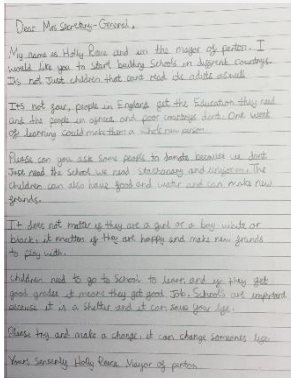 Dear Mrs Secretary-General,
My name is Holly Reece and im the mayor of parton. I
would like you to start building schools in different countrys.
Its not just children that cant read its adults aswell
Its not fair, people in England get the Education they need
and the people in africa and poor countrys dont. One week
of learning could make them a whole new person.
Please can you ask some people to donate because we dont
just need the school we need stachonary and uniform. The
children can also have food and water and can make new
friends.
It does not matter if they are a girl or a boy, white or
black, it matters if they are happy and make new friends
to play with.
children need to go to School to learn and if they get
good grades it means they get good Job. Schools are important
because it is a shelter and it can save your life.
Please try and make a change, it can change someones life
Yours Sencerly Holly Reece Mayor of parton